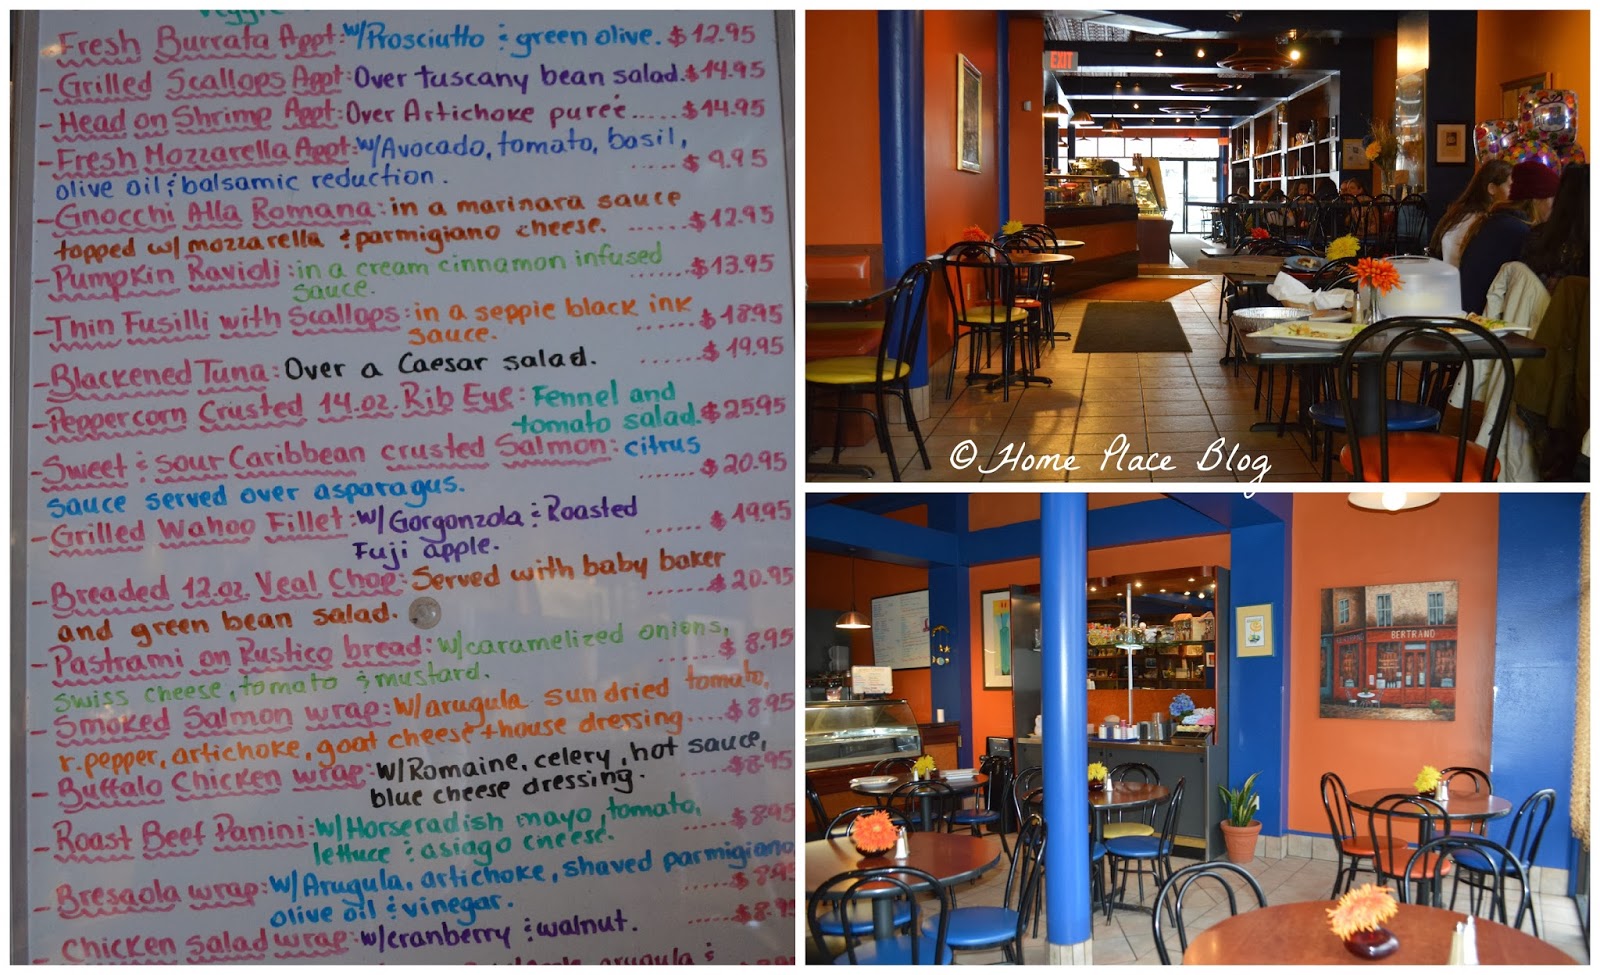 Veggie
Fresh Burrata Appt: w/Prosciutto & green olive. $12.95
- Grilled Scallops Appt: Over tuscany bean salad. $14.95
- Head on Shrimp Appt: Over Artichoke pureé..... $14.95
- Fresh Mozzarella Appt: w/Avocado, tomato, basil,
olive oil & balsamic reduction. ..... $9.95
- Gnocchi Alla Romana: in a marinara sauce
topped w/ mozzarella & parmigiano cheese. ...... $12.95
- Pumpkin Ravioli: in a cream cinnamon infused
sauce. ...... $13.95
- Thin Fusilli with Scallops: in a seppie black ink
sauce. ...... $18.95
- Blackened Tuna: Over a Caesar salad. ...... $19.95
- Peppercorn Crusted 14.oz. Rib Eye: Fennel and
tomato salad. $25.95
- Sweet & sour Caribbean crusted Salmon: citrus
sauce served over asparagus. ...... $20.95
- Grilled Wahoo Fillet: w/Gorgonzola & Roasted
Fuji apple. ...... $19.95
- Breaded 12.oz. Veal Chop: Served with baby baker
and green bean salad. ...... $20.95
- Pastrami on Rustico bread: w/caramelized onions,
swiss cheese, tomato & mustard. ...... $8.95
- Smoked Salmon wrap: w/arugula sun dried tomato,
r. pepper, artichoke, goat cheese + house dressing .... $8.95
- Buffalo Chicken wrap: w/Romaine, celery, hot sauce,
blue cheese dressing. ...... $8.95
- Roast Beef Panini: w/Horseradish mayo, tomato,
lettuce & asiago cheese. ...... $8.95
- Bresaola wrap: w/Arugula, artichoke, shaved parmigiano
olive oil & vinegar. ...... $8.95
- Chicken salad wrap: w/cranberry & walnut. ...... $8.9
arugula &
EXIT
© Home Place Blog
BERTRAND